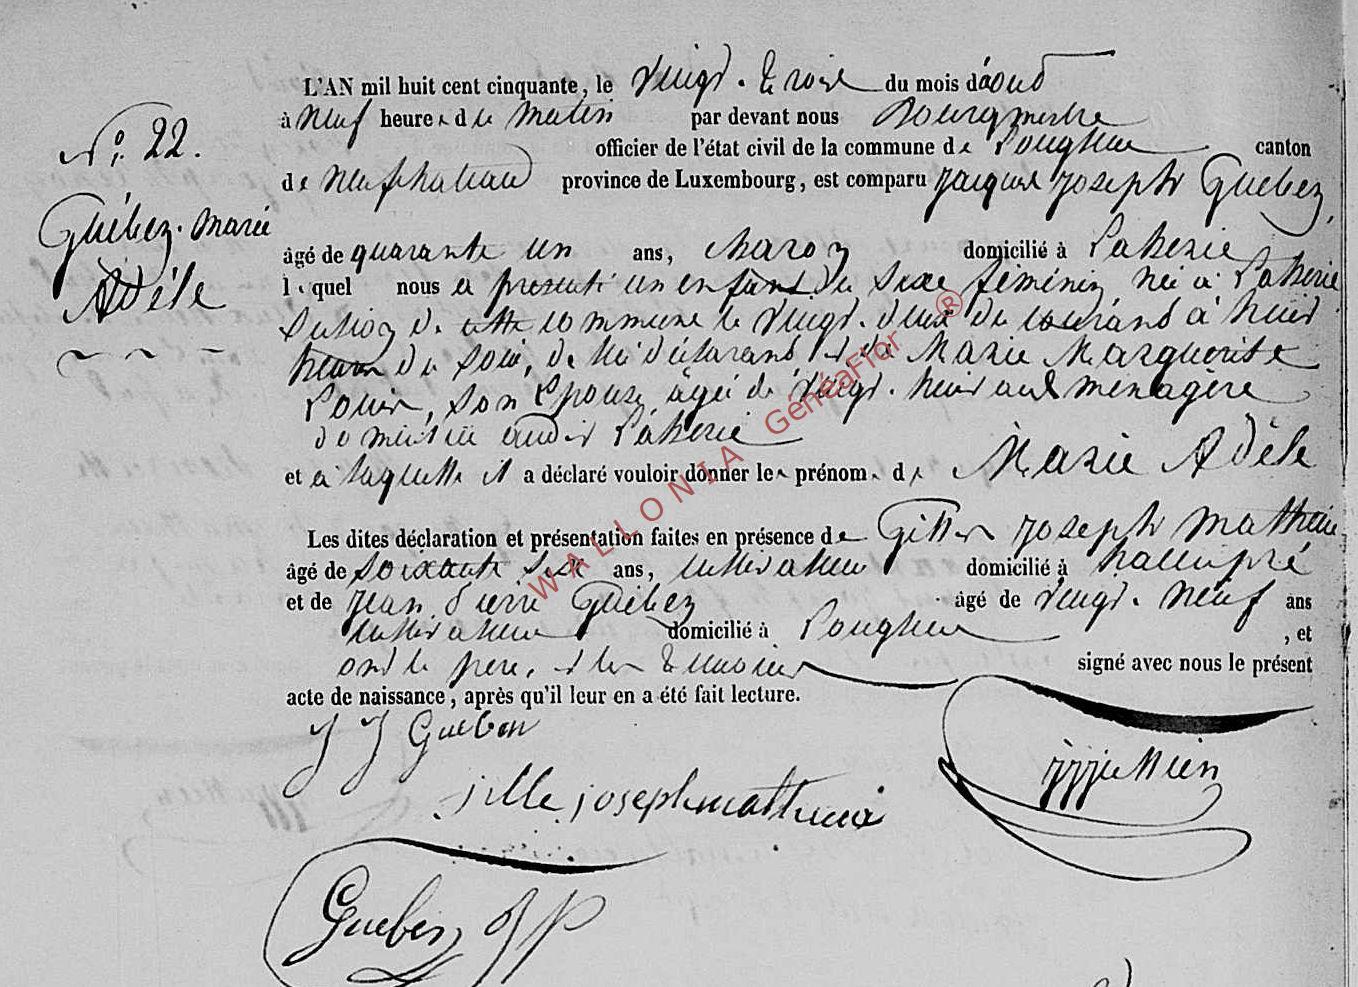 L'AN mil huit cent cinquante, le vingt-trois du mois d'aout
à neuf heures du matin par devant nous Bourgmestre
No. 22. officier de l'état civil de la commune de Longlier canton
de neufchateau province de Luxembourg, est comparu jacques joseph Guebez,
Guébez. Marie
Adèle
âgé de quarante un ans, charon domicilié à Laherie
lequel nous a presenté un enfant du sexe féminin née à Laherie
section de cette commune le vingt-deux du courand à huid
heures du soir, de lui déclarand et de Marie Marguerite
son Epouse, âgée de vingt-huit ans menagère
domiciliée audit Laherie
et à laquelle il a déclaré vouloir donner les prénoms de Marie Adèle
Les dites déclaration et présentation faites en présence de joseph mathieu
âgé de soixante six ans, cultivateur domicilié à hamipré
et de jean pierre Guébez âgé de vingt-neuf ans
cultivateur domicilié à Longlier, et
ont le père, et les temoins signé avec nous le présent
acte de naissance, après qu'il leur en a été fait lecture.
J J Gueben
jille joseph mathieu
Gueben J P
WALLONIA GenéaFlor ®